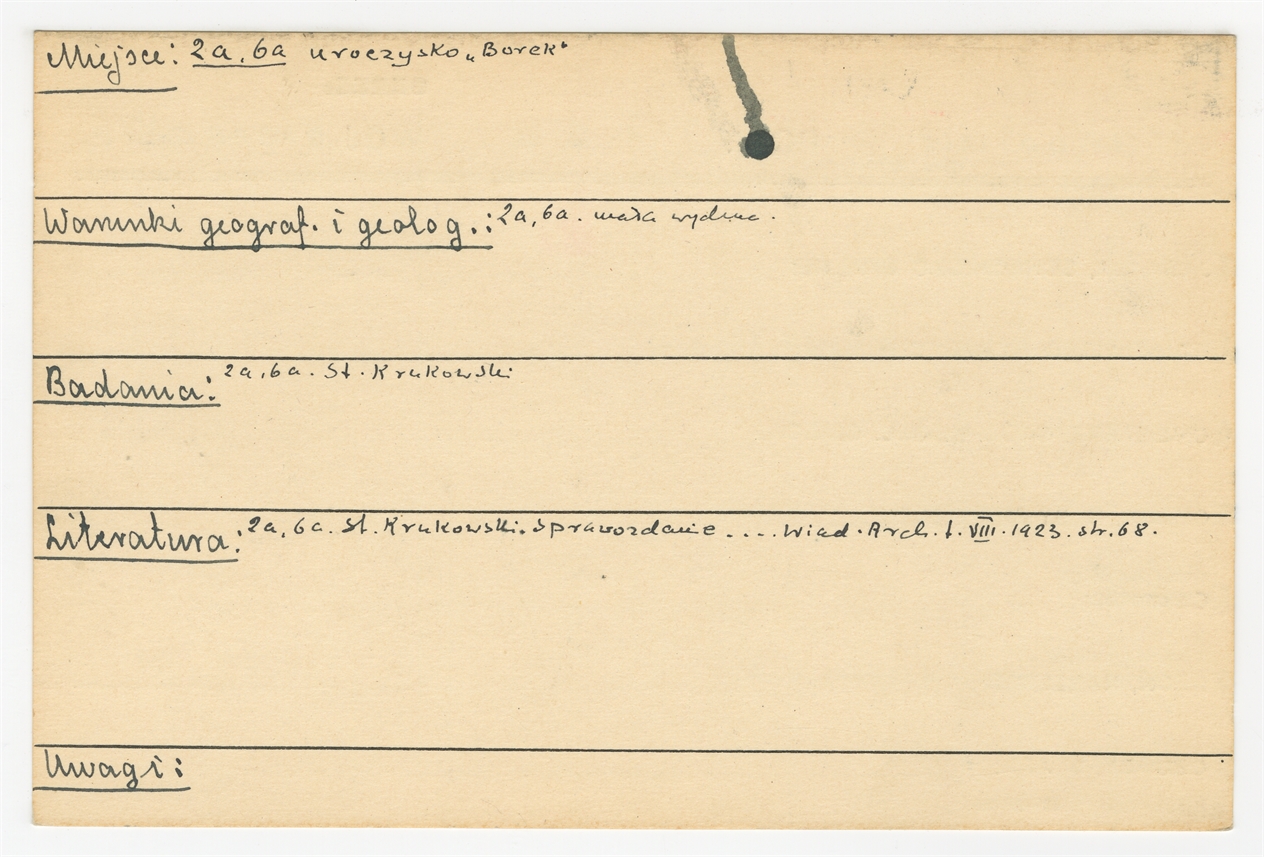 Miejsce: 2a, 6a uroczysko „Borek"
Warunki geograf. i geolog.: 2a, 6a. mała wydma.
Badania: 2a, 6a. St. Krukowski
Literatura: 2a, 6a. St. Krukowski. Sprawozdanie .... Wiad. Arch. t. VIII. 1923. str. 68.
Uwagi: